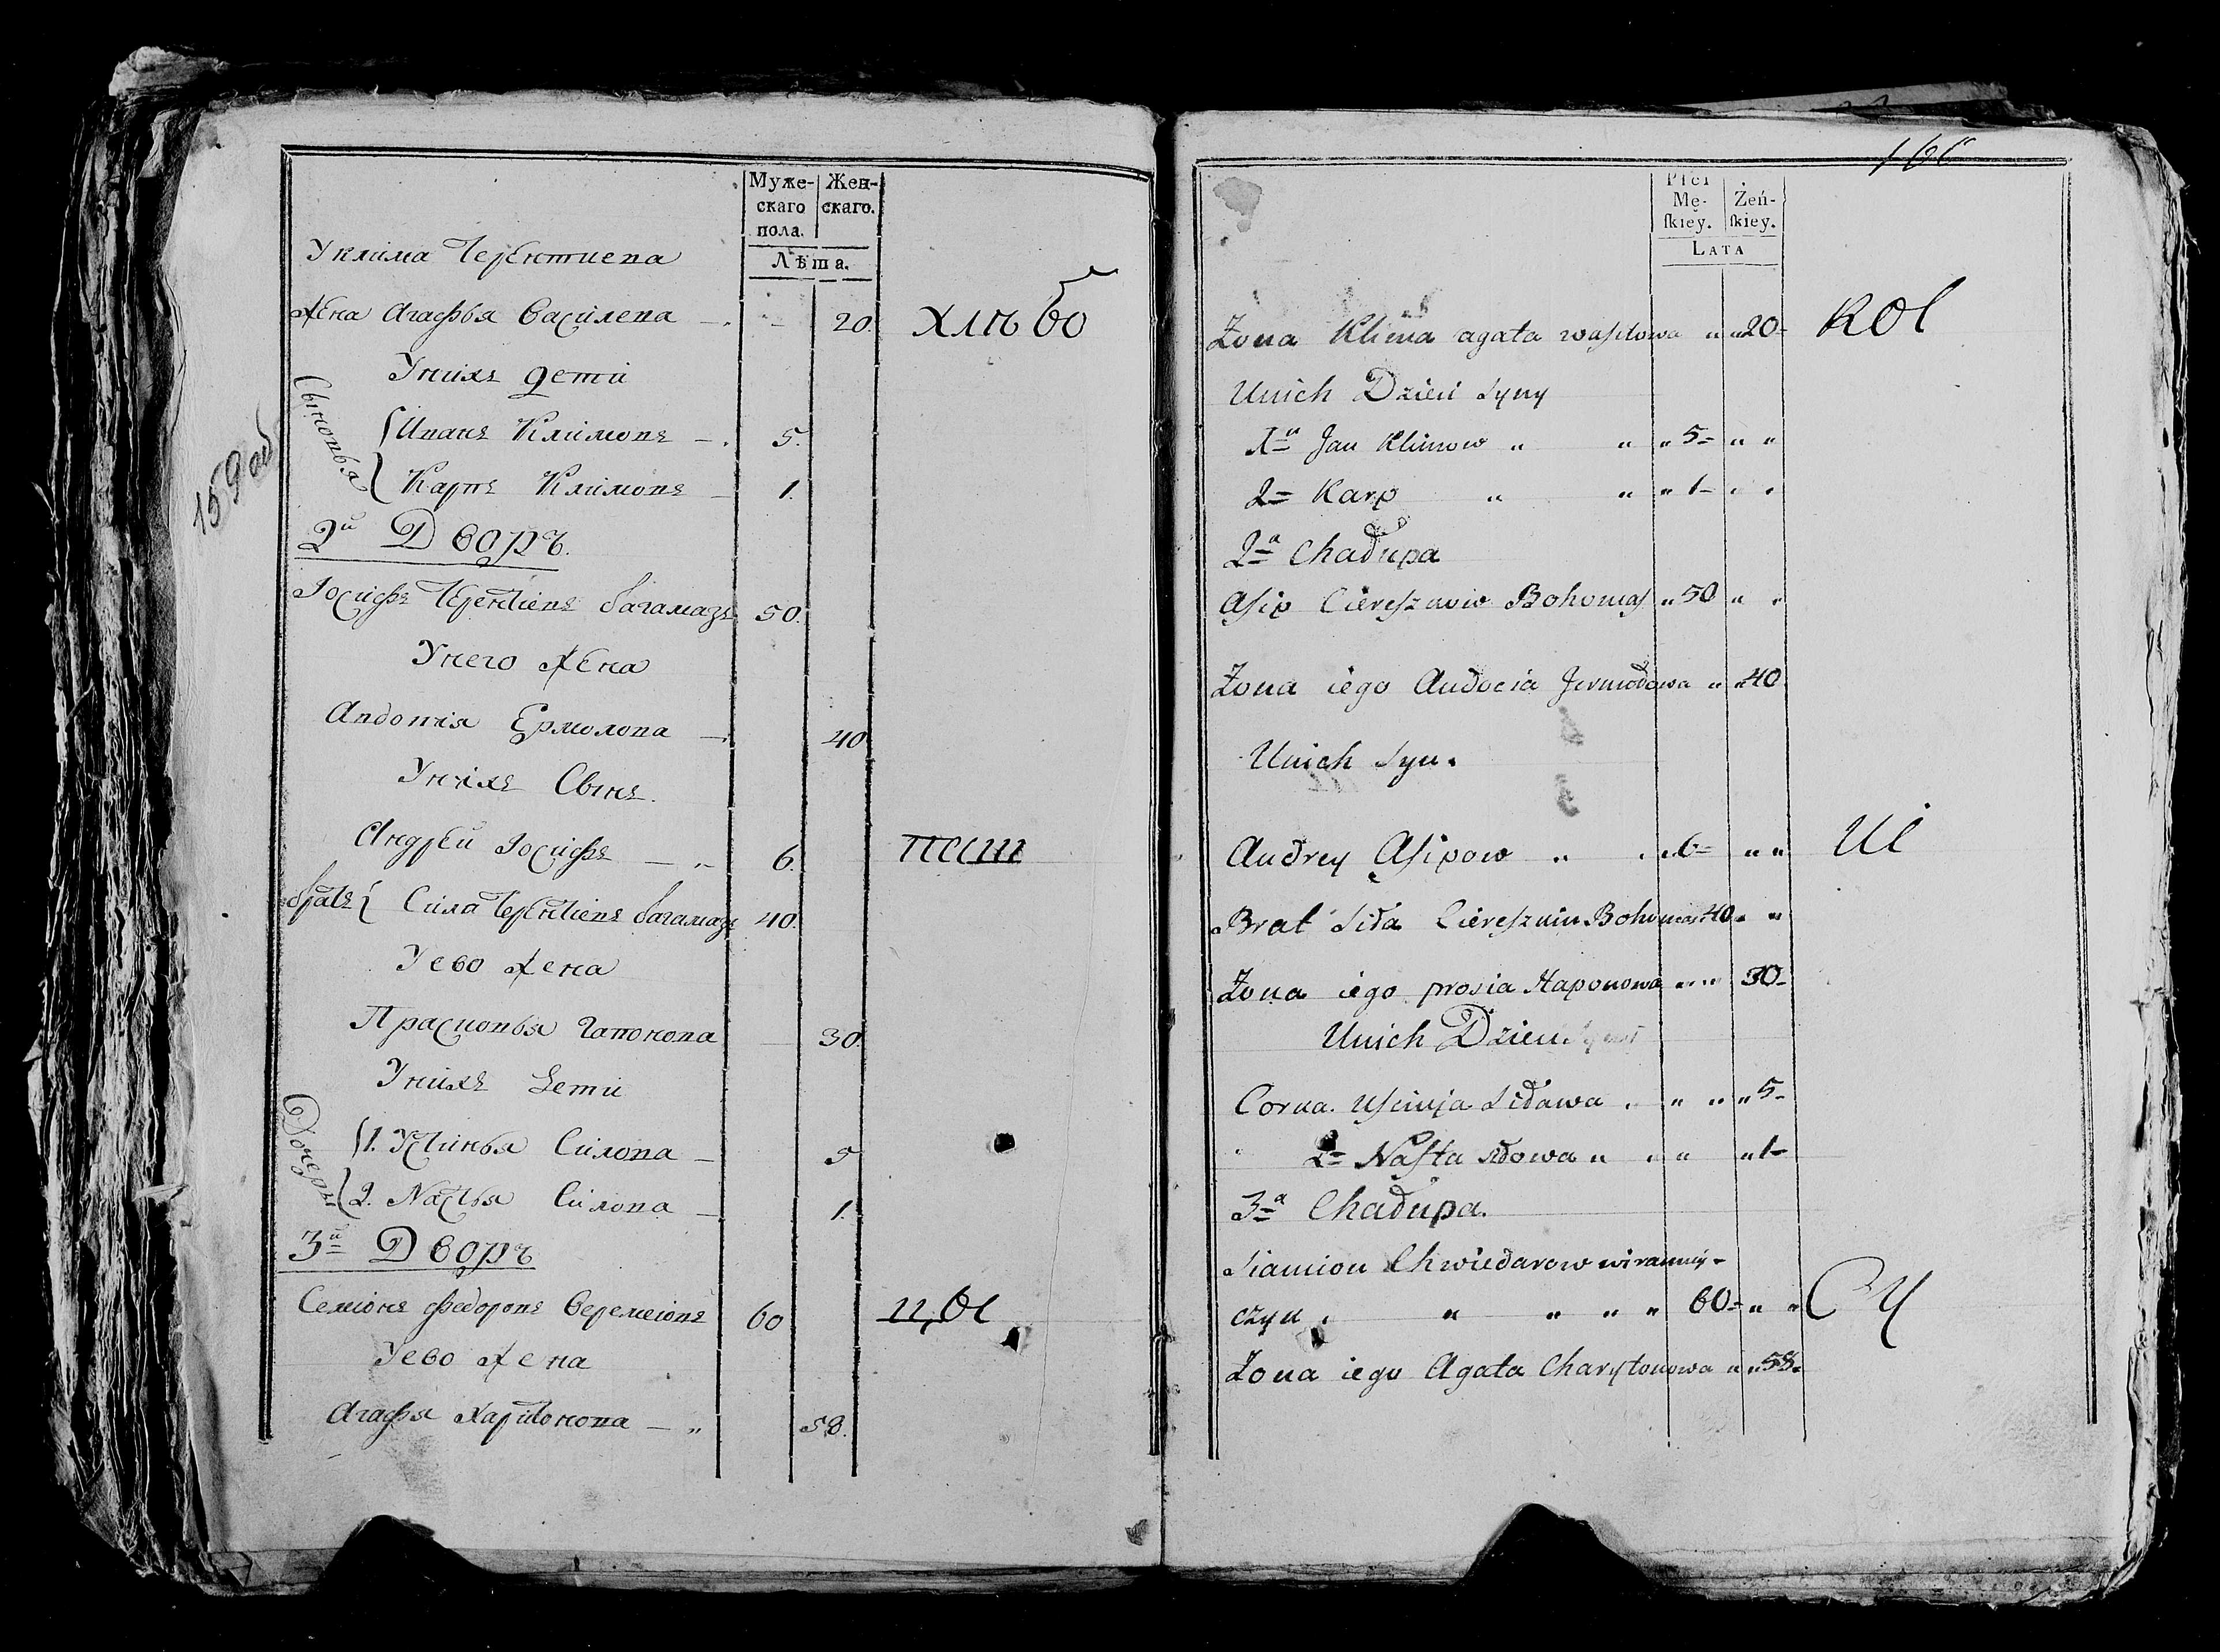 159 об
Муже-
скаго
пола.
Жен-
скаго.
Лѣта.
У Клима Терентиева
жена Агафья Василева — 20.
Хлѣбо
У нихъ дети
Сыновья
Иванъ Климовъ — 5.
Карпъ Климовъ — 1.
2й Дворъ.
Іосифъ Терентіевъ багамазъ 50.
У него жена
Авдотия Ермолова — 40
У нихъ Сынъ.
Андрей Іосифъ — „ 6.
братъ Сила Терентіевъ багамазъ 40.
У ево жена
Прасковья Гапонова 30.
У нихъ дети
Дочери
1. Устинья Силова — 5
2. Настья Силова — 1.
3й Дворъ
Семіонъ Федоровъ Веремеіовъ 60
У ево жена
Агафя Харитонова — „ 58.
166
Płci
Mę-
ſkiey.
Żeń-
ſkiey.
LATA
Żona Klima agata wasilowa „ „ 20-
Unich Dzieci Syny
1a Jan Klimow „ „ „ 5- „ „
2= Karp „ „ „ 1- „ „
2a Chałupa
Asip Ciereszniow Bohomas „ 50 „ „
Żona iego Audocia Jermołowa „ „ 40
Unich Syn.
Andrey Asipow „ „ 6- „ „
Brat Siła Ciereszniu Bohomas 40 „ „
Żona iego prosia Haponowa „ „ 30-
Unich Dzieci
Corka. Uscinja Siława „ „ „ „ 5-
2= Nasta siłowa „ „ „ „ 1-
3a Chałupa.
Siamion Chwiedarow wiramiy-
czyn „ „ „ „ „ 60- „ „
Żona iego Agata Charytonowa „ „ 58-